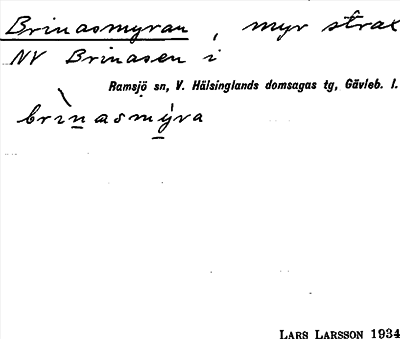 Brinasmyran, myr strax
NV Brinasen i
Ramsjö sn, V. Hälsinglands domsagas tg, Gävleb. l.
brìnasmýra
LARS LARSSON 1934